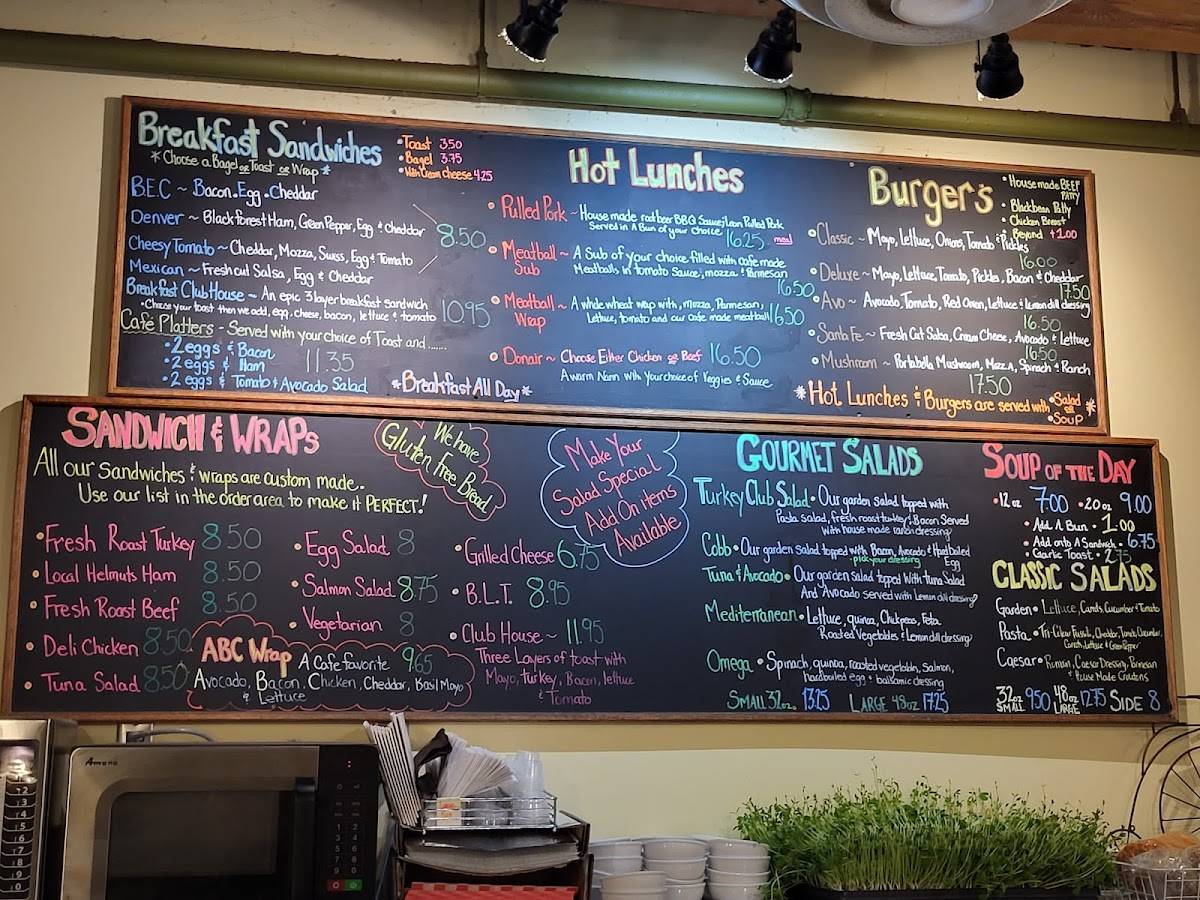 Breakfast Sandwiches
*Choose a Bagel or Toast or Wrap*
•Toast 3.50
•Bagel 3.75
•With Cream Cheese 4.25
B.E.C ~ Bacon.Egg.Cheddar
Denver ~ Black Forest Ham, Green Pepper, Egg & Cheddar
8.50
Cheesy Tomato ~ Cheddar, Mozza, Swiss, Egg & Tomato
Mexican ~ Fresh cut Salsa, Egg & Cheddar
Breakfast Club House ~ An epic 3 layer breakfast sandwich
•Choose your toast then we add, egg, cheese, bacon, lettuce & tomato 10.95
Café Platters - Served with your choice of Toast and.......
•2 eggs & Bacon
•2 eggs & Ham 11.35
•2 eggs & Tomato & Avocado Salad
*Breakfast All Day*
Hot Lunches
•Pulled Pork ~ House made root beer BBQ Sauce/Lean Pulled Pork
Served in A Bun of your Choice 16.25 meal
•Meatball Sub ~ A Sub of your choice filled with cafe made
Meatballs in tomato Sauce, mozza & Parmesan
16.50
•Meatball Wrap ~ A whole wheat wrap with, mozza, Parmesan,
Lettuce, tomato and our cafe made meatball 16.50
•Donair ~ Choose Either Chicken or Beef 16.50
A warm Nann with Your choice of Veggies & Sauce
Burger's
•House made BEEF PATTY
•Blackbean Patty
•Chicken Breast
•Beyond +1.00
•Classic ~ Mayo, Lettuce, Onions, Tomato & Pickles
16.00
•Deluxe ~ Mayo, Lettuce, Tomato, Pickles, Bacon & Cheddar
17.50
•Avo ~ Avocado, Tomato, Red Onion, Lettuce & lemon dill dressing
16.50
•Santa Fe ~ Fresh Cut Salsa, Cream Cheese, Avocado & Lettuce
16.50
•Mushroom ~ Portabella Mushroom, Mozza, Spinach & Ranch
17.50
*Hot Lunches & Burgers are served with •Salad or •Soup*
SANDWICH & WRAPs
All our sandwiches & wraps are custom made..
Use our list in the order area to make it PERFECT!
We have
Gluten Free
Bread
•Fresh Roast Turkey 8.50
•Local Helmuts Ham 8.50
•Fresh Roast Beef 8.50
•Deli Chicken 8.50
•Tuna Salad 8.50
•Egg Salad 8
•Salmon Salad 8.75
•Vegetarian 8
ABC Wrap A Cafe favorite 9.65
Avocado, Bacon, Chicken, Cheddar, Basil Mayo
& Lettuce
•Grilled Cheese 6.75
•B.L.T. 8.95
•Club House ~ 11.95
Three Layers of toast with
Mayo, turkey, Bacon, lettuce
& Tomato
Make Your
Salad Special
Add On items
Available
GOURMET SALADS
Turkey Club Salad • Our garden salad topped with
Pasta salad, fresh roast turkey & Bacon Served
with house made ranch dressing
Cobb • Our garden salad topped with Bacon, Avocado & Hard boiled Egg
pick your dressing
Tuna & Avocado • Our garden salad topped with tuna Salad
And Avocado served with Lemon dill dressing
Mediterranean • Lettuce, quinoa, Chickpeas, Feta
Roasted Vegetables & Lemon dill dressing
Omega • Spinach, quinoa, roasted vegetables, salmon,
hardboiled egg & balsamic dressing
SMALL 32oz. 13.25 LARGE 48oz 17.25
SOUP OF THE DAY
•12 oz 7.00 •20 oz 9.00
•Add A Bun • 1.00
•Add onto A Sandwich • 6.75
•Garlic Toast • 2.75
CLASSIC SALADS
Garden • Lettuce, Carrots, Cucumber & Tomato
Pasta • Tri-Colour Fusilli, Cheddar, Tomato, Cucumber,
Carrots, Lettuce & Green Pepper
Caesar • Romain, Caesar Dressing, Parmesan
& House Made Croutons
32oz SMALL 9.50 48oz LARGE 12.75 SIDE 8
Amana